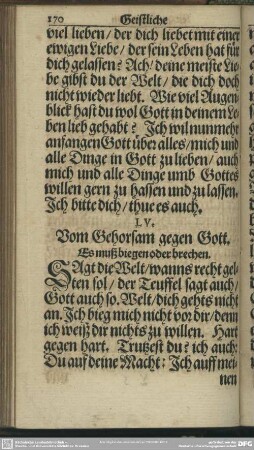 170 Geistliche
viel lieben/ der dich liebet mit einer
ewigen Liebe/ der sein Leben hat für
dich gelassen? Ach/ deine meiste Lie-
be gibst du der Welt/ die dich doch
nicht wieder liebt. Wie viel Augen-
blick hast du wol Gott in deinem Le-
ben lieb gehabt? Ich wil nunmehr
anfangen Gott über alles/ mich und
alle Dinge in Gott zu lieben/ auch
mich und alle Dinge umb Gottes
willen gern zu hassen und zu lassen.
Ich bitte dich/ thue es auch.
LV.
Vom Gehorsam gegen Gott.
Es muß biegen oder brechen.
SAgt die Welt/ wanns recht gel-
ten sol/ der Teuffel sagt auch/
Gott auch so. Welt/ dich gehts nicht
an. Ich bieg mich nicht vor dir/ denn
ich weiß dir nichts zu willen. Hart
gegen hart. Trutzest du? ich auch:
Du auf deine Macht: Ich auff mei-
nen